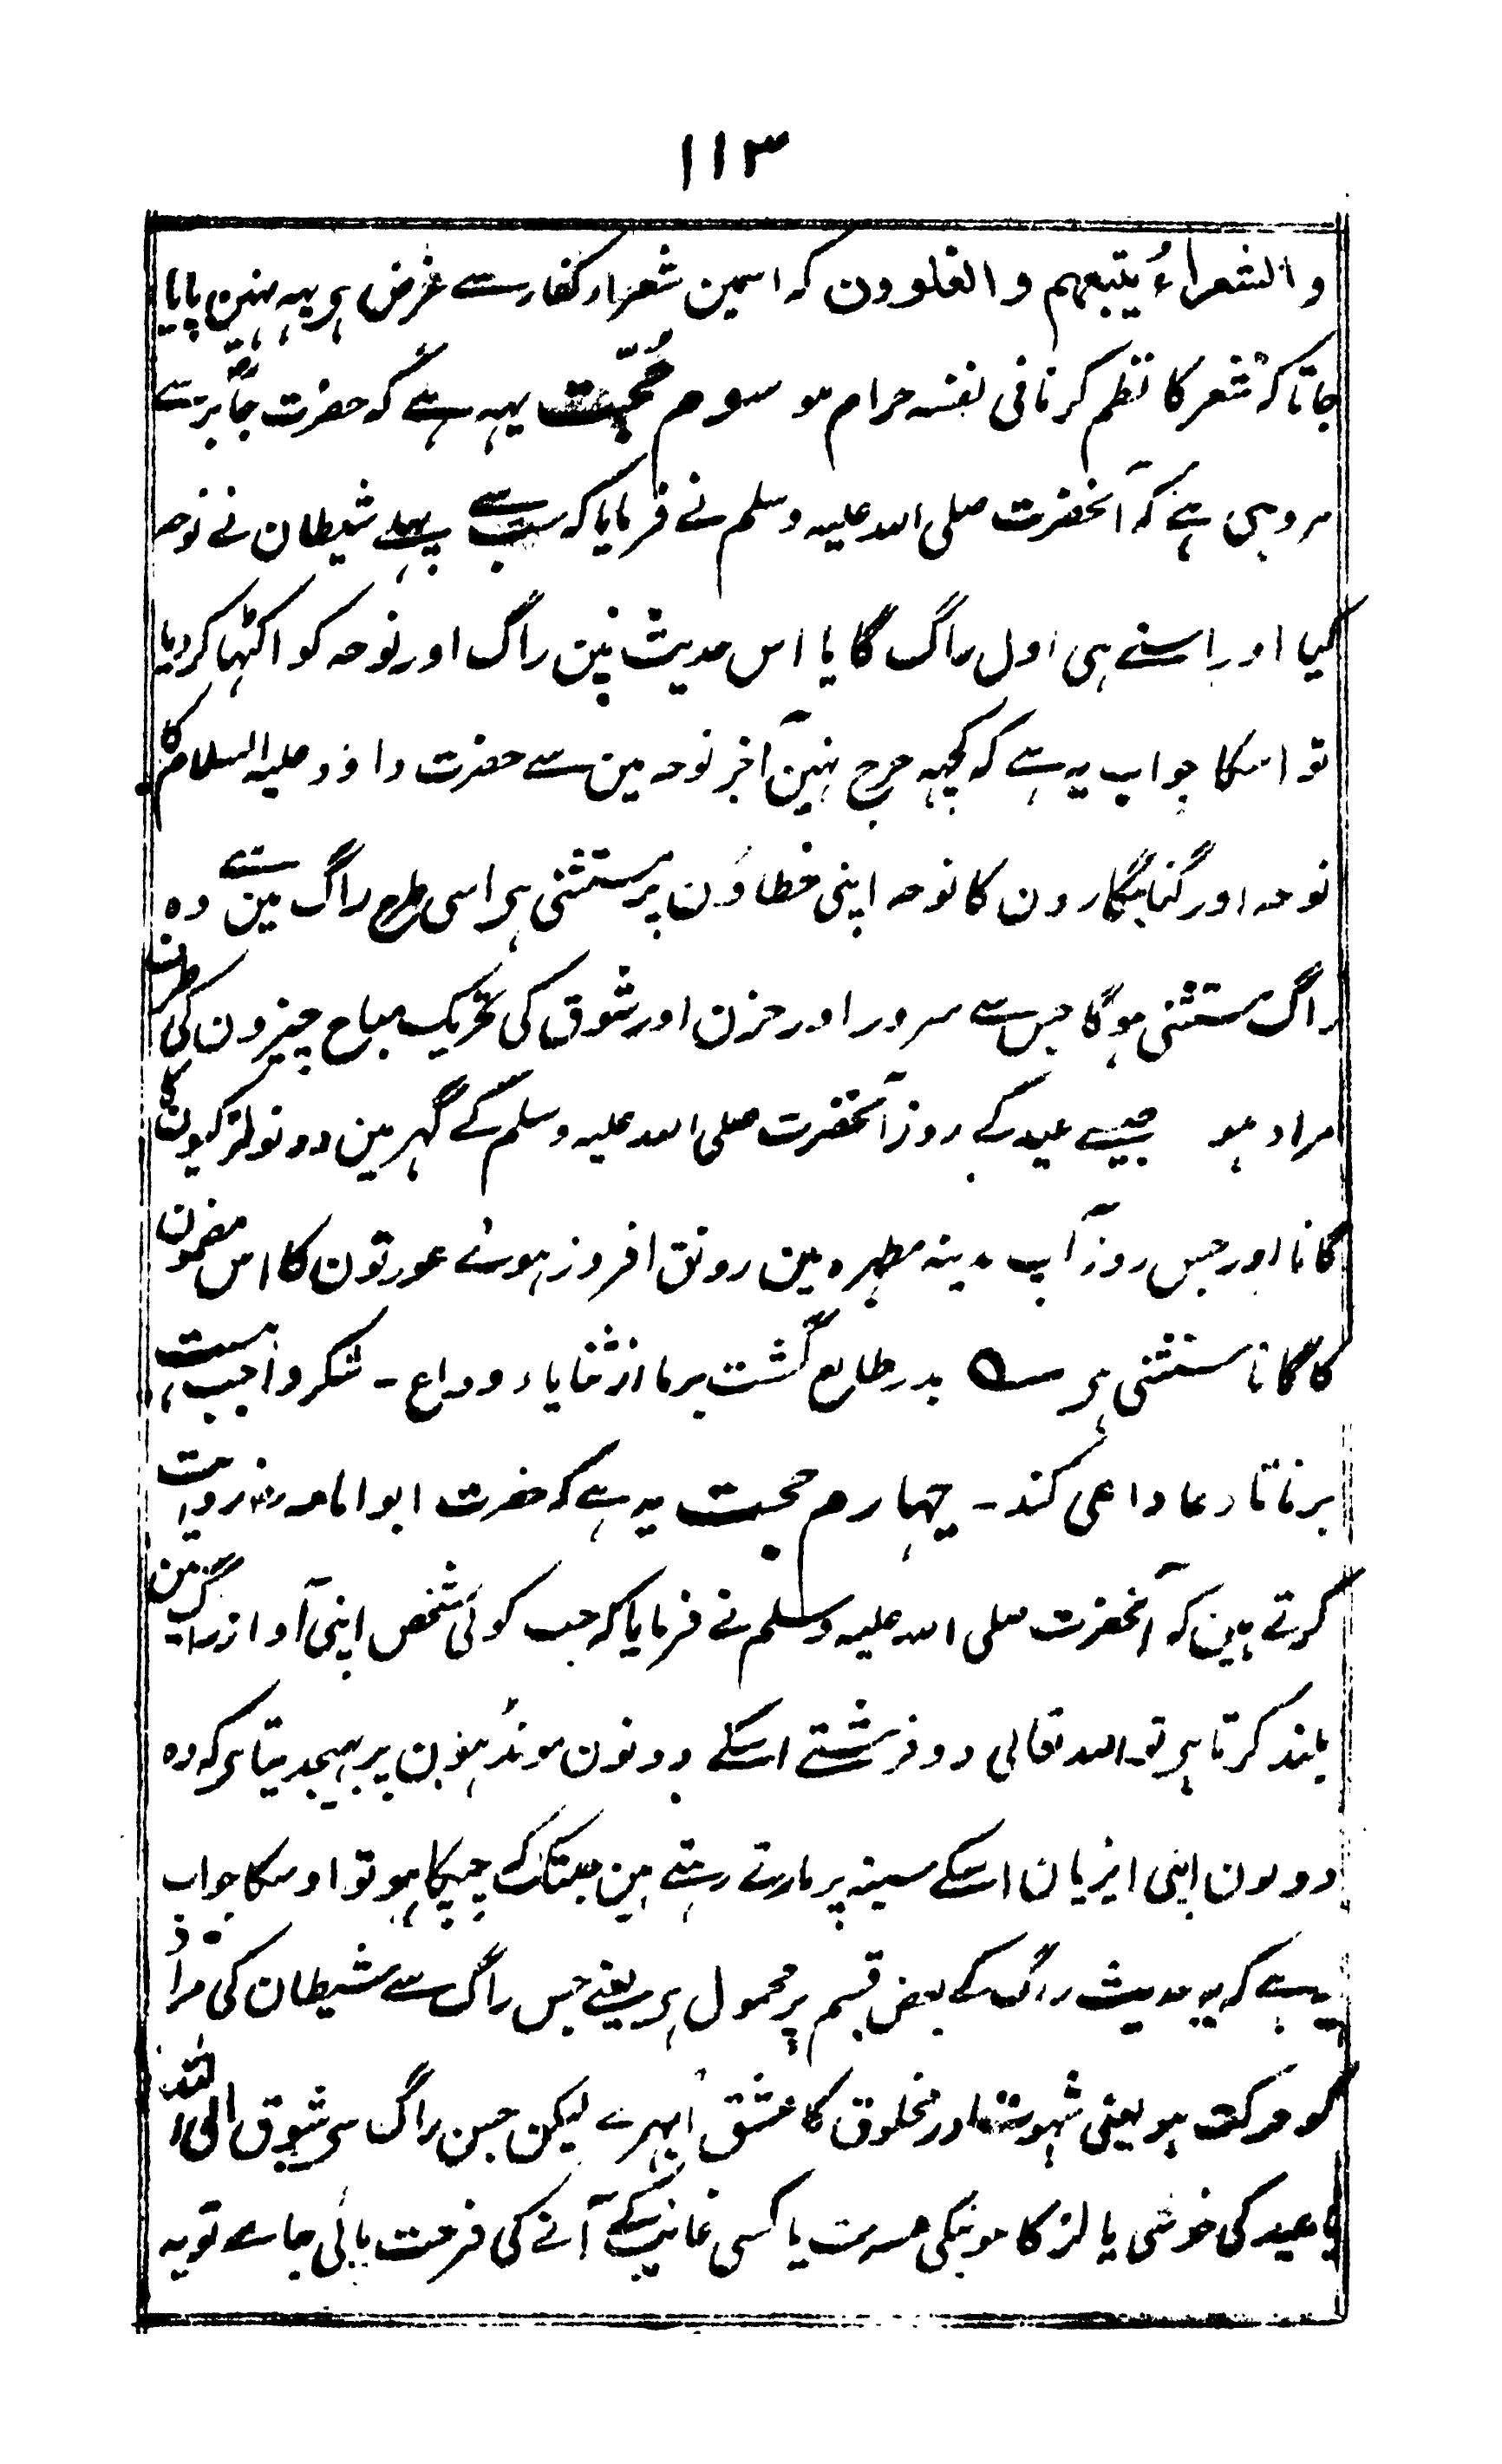 ١١٣
والشعراءُ یتبعہم والغلوون کہ اسمین شعراء کفار سے غرض ہی یہہ نہین پایا
جاتا کہ شعر کا نظم کرنا فی نفسہ حرام ہو سوم حُجّت یہہ ہے کہ حضرت جابرؓ سے
مروی ہے کہ آنحضرت صلی اللہ علیہ وسلم نے فرمایا کہ سب سے پہلے شیطان نے نوحہ
کیا اور اسنے ہی اول راگ گایا اس حدیث مین راگ اور نوحہ کو اکٹہا کردیا
تو اسکا جواب یہ ہے کہ کچہہ حرج نہین آخر نوحہ مین سے حضرت داؤد علیہ السلام کا
نوحہ اور گناہگارون کا نوحہ اپنی خطاؤن پر مستثنی ہی اسی طرح راگ مین سے وہ
راگ مستثنی ہوگا جس سے سرور اور حزن اور شوق کی تحریک مباح چیزون کی طرف
مراد ہو جیسے عید کے روز آنحضرت صلی اللہ علیہ وسلم کے گہر مین دونو لڑکیون کا
گانا اور جس روز آپ مدینہ مطہرہ مین رونق افروز ہوئے عورتون کا اس مضمون
کا گانا مستثنی ہی ؎ بدر طالع گشت برما از ثنایاء وداع ۔ شکر واجب ہست
برما تا دعا داعی کند ۔ چہارم حجت یہ ہے کہ حضرت ابوامامہ رضہ روایت
کرتے ہین کہ آنحضرت صلی اللہ علیہ وسلم نے فرمایا کہ جب کوئی شخص اپنی آواز راگ مین
بلند کرتا ہی تو اللہ تعالی دو فرشتے اسکے دونون مونڈہون پر بہیجدیتا ہی کہ وہ
دونون اپنی ایڑیان اسکے سینہ پر مارتے رہتے ہین جبتک کہ چپکا ہو تو اوسکا جواب
یہ ہے کہ یہ حدیث راگ کے بعض قسم پر محمول ہی یعنے جس راگ سے شیطان کی مراد
کو حرکت ہو یعنی شہوت اور مخلوق کا عشق اُبہرے لیکن جس راگ سی شوق الی اللہ
یا عید کی خوشی یا لڑکا ہونیکی مسرت یا کسی غائب کے آنے کی فرحت پائی جاے تو یہ